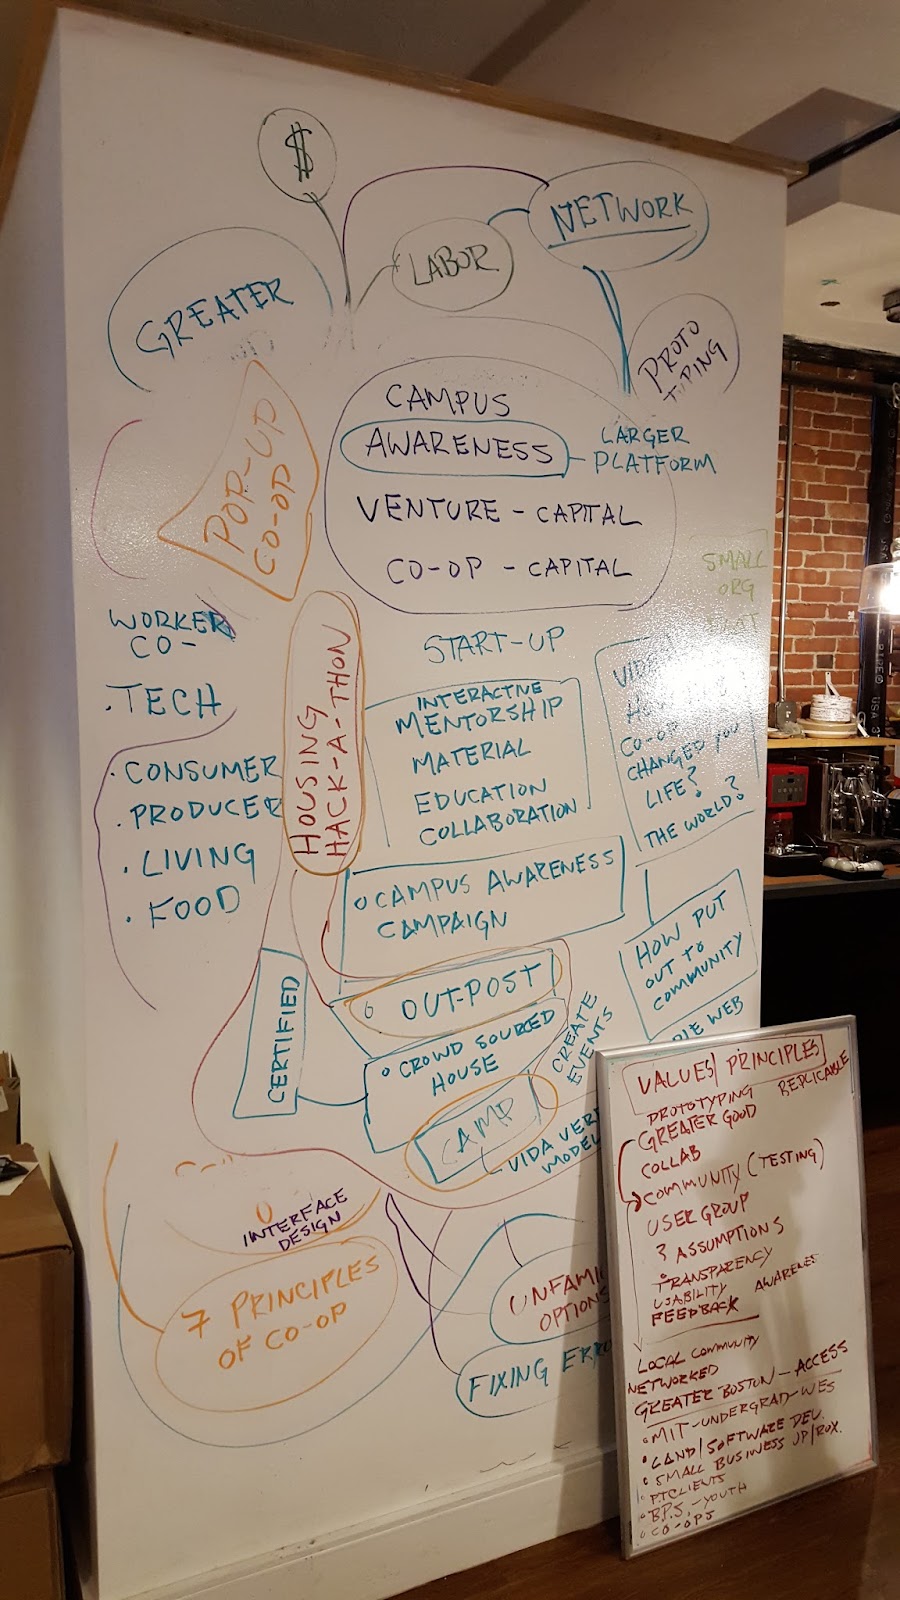 $
NETWORK
LABOR
GREATER
PROTO
TYPING
CAMPUS
AWARENESS
LARGER
PLATFORM
VENTURE - CAPITAL
CO-OP - CAPITAL
POP-UP
CO-OP
SMALL
ORG
WORKER
CO-
· TECH
· CONSUMER
· PRODUCER
· LIVING
· FOOD
HOUSING
HACK-A-THON
START-UP
INTERACTIVE
MENTORSHIP
MATERIAL
EDUCATION
COLLABORATION
CO-OP
CHANGED YOU
LIFE?
THE WORLD?
O CAMPUS AWARENESS
CAMPAIGN
HOW PUT
OUT TO
COMMUNITY
WEB
CERTIFIED
OUT-POST
O CROWD SOURCED
HOUSE
CREATE
EVENTS
CAMP
VIDA VER
MODEL
INTERFACE
DESIGN
7 PRINCIPLES
OF CO-OP
UNFAMI
OPTIONS
FIXING ERRO
VALUES/PRINCIPLES
PROTOTYPING REPLICABLE
GREATER GOOD
COLLAB
COMMUNITY (TESTING)
USER GROUP
? ASSUMPTIONS
TRANSPARENCY
USABILITY
FEEDBACK AWARENES
LOCAL COMMUNITY
NETWORKED
GREATER BOSTON - ACCESS
· MIT-UNDERGRAD-WES
· LAND/SOFTWARE DEV.
· SMALL BUSINESS JP/ROX.
· PT CLIENTS
· B.P.S. - YOUTH
· CO-OPS